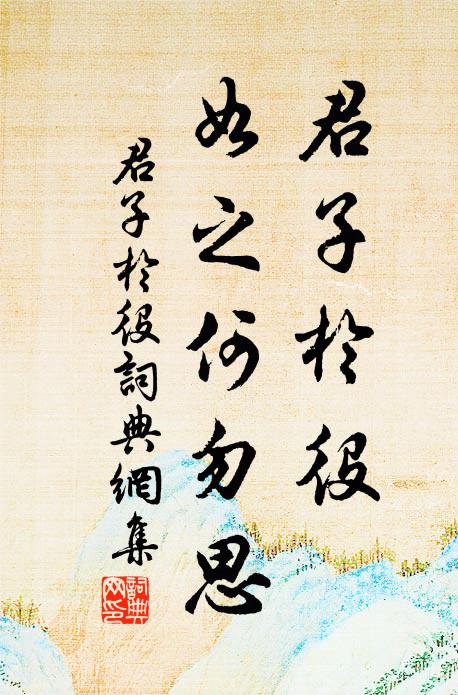 君子於役
如之何勿思
君子於役詞典網集
詞典
網印